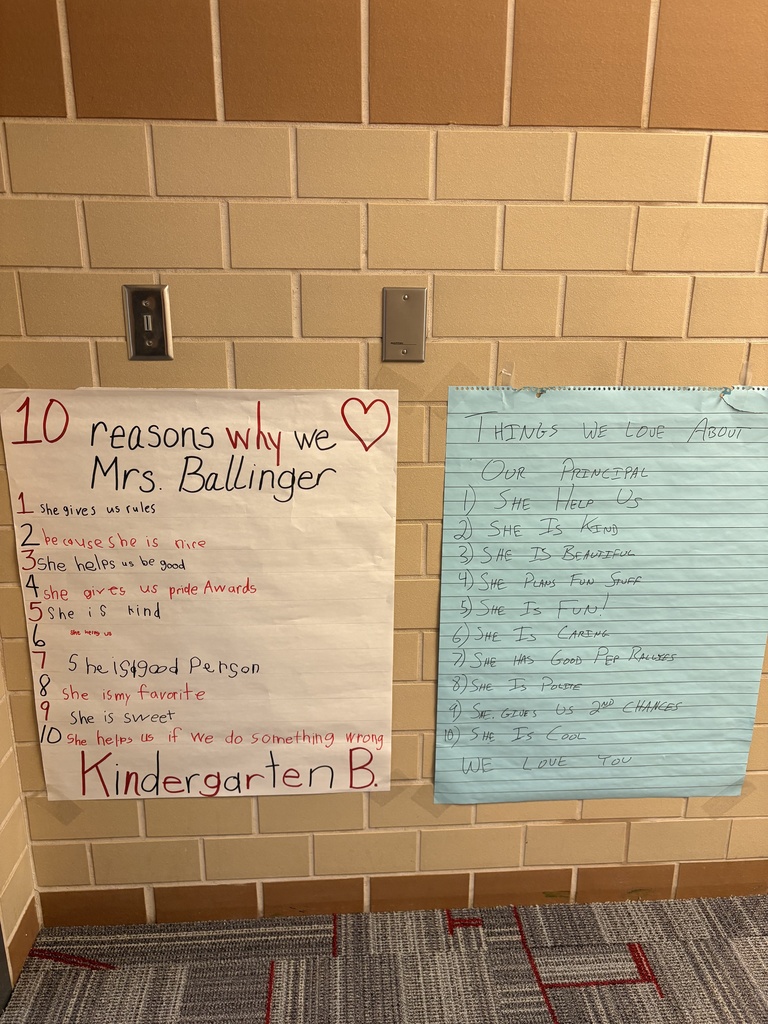 10 reasons why we
Mrs. Ballinger
1 she gives us rules
2 because she is nice
3 she helps us be good
4 she gives us pride Awards
5 She is kind
6 she us
7 She is good Person
8 She is my favorite
9 She is sweet
10 She helps us if we do something wrong
Kindergarten B.
THINGS WE LOVE ABOUT
OUR PRINCIPAL
1) SHE HELP US
2) SHE IS KIND
3) SHE IS BEAUTIFUL
4) SHE PLANS FUN STUFF
5) SHE IS FUN!
6) SHE IS CARING
7) SHE HAS GOOD PEP RALLYES
8) SHE IS POLITE
9) SHE GIVES US 2ND CHANCES
10) SHE IS COOL
WE LOVE YOU